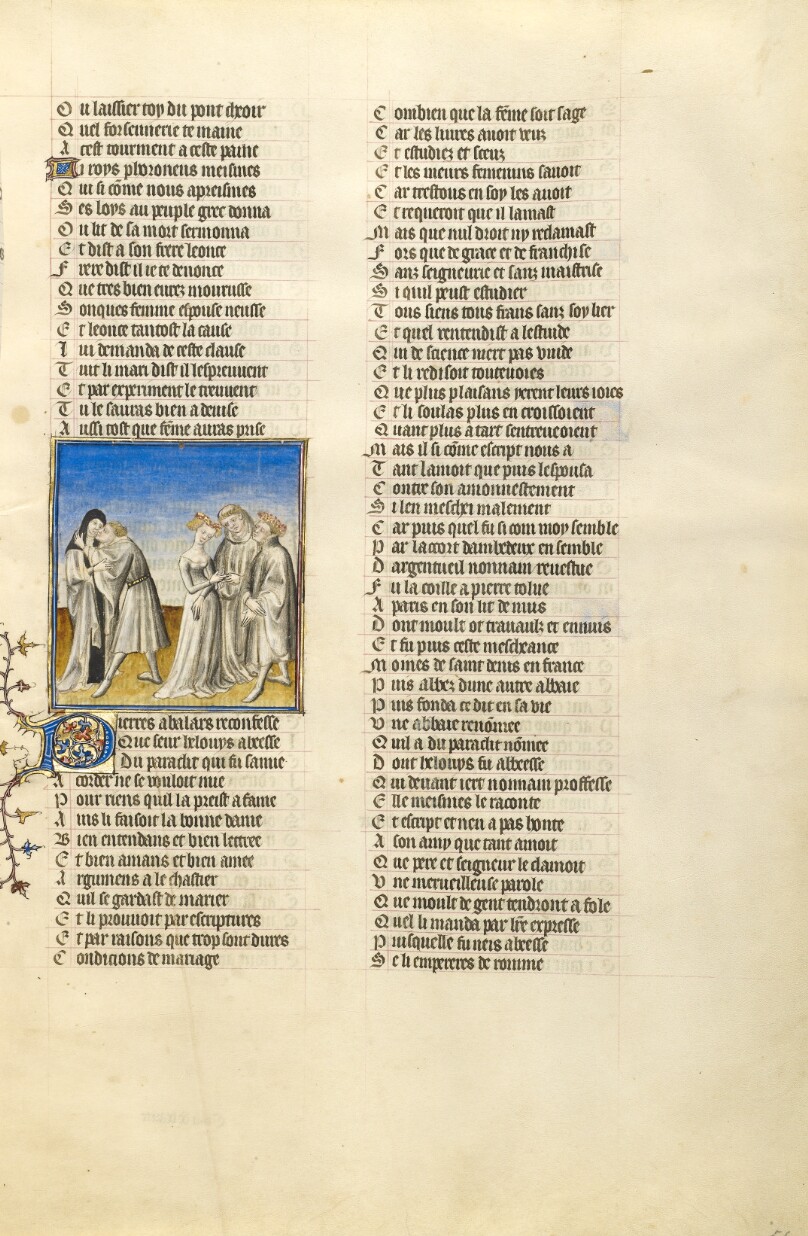 O u laissier toy du pont cheoir
Q uel forsennerie te maine
A cest tourment a ceste paine
Li roys phoroneus meismes
Q ui si cõme nous apreismes
S es loys au peuple grec donna
O u lit de sa mort sermonna
E t dist a son frere leonce
F rere dist il ie te denonce
Q ue tres bien eurez mourusse
S onques femme espouse neusse
E t leonce tantost la cause
l ui demanda de ceste clause
T uit li mari dist il lespreuuent
E t par experiment le treuuent
T u le sauras bien a deuise
A ussi tost que fẽme auras prise
Pierres abalars reconfesse
Que seur helouys abeesse
Du paraclit qui fu samie
A corder ne se vouloit mie
P our riens quil la preist a fame
A ins li faisoit la bonne dame
B ien entendans et bien lettree
E t bien amans et bien amee
A rgumens a le chastier
Q uil se gardast de marier
E t li prouuoit par escriptures
E t par raisons que trop sont dures
C ondicions de mariage
C ombien que la fẽme soit sage
C ar les liures auoit veuz
E t estudiez et sceuz
E t les meurs femenins sauoit
C ar trestous en soy les auoit
E t requeroit que il lamast
M ais que nul droit ny reclamast
F ors que de grace et de franchise
S anz seigneurie et sanz maistrise
S i quil peust estudier
T ous siens tous frans sanz soy lier
E t quel rentendist a lestude
Q ui de science niert pas vuide
E t li redisoit toutesuoies
Q ue plus plaisans yerent leurs ioies
E t li soulas plus en croissoient
Q uant plus a tart sentreueoient
M ais il si cõme escript nous a
T ant lamoit que puis lespousa
C ontre son amonnestement
S i len mescheï malement
C ar puis quel fu si com moy semble
P ar laccort dambedeux en semble
D argentueil nonnain reuestue
F u la coille a pierre tolue
A paris en son lit de nuis
D ont moult ot trauaulz et ennuis
E t fu puis ceste mescheance
M oines de saint denis en france
P uis abbez dune autre abbaie
P uis fonda ce dit en sa vie
V ne abbaie renõmee
Q uil a du paraclit nõmee
D ont helouys fu abeesse
Q ui deuant iert nonnain professe
E lle meismes le raconte
E t escript et nen a pas honte
A son amy que tant amoit
Q ue pere et seigneur le clamoit
V ne merueilleuse parole
Q ue moult de gent tendront a fole
Q uel li manda par lr̃e expresse
P uisquelle fu neis abeesse
S e li empereres de romme